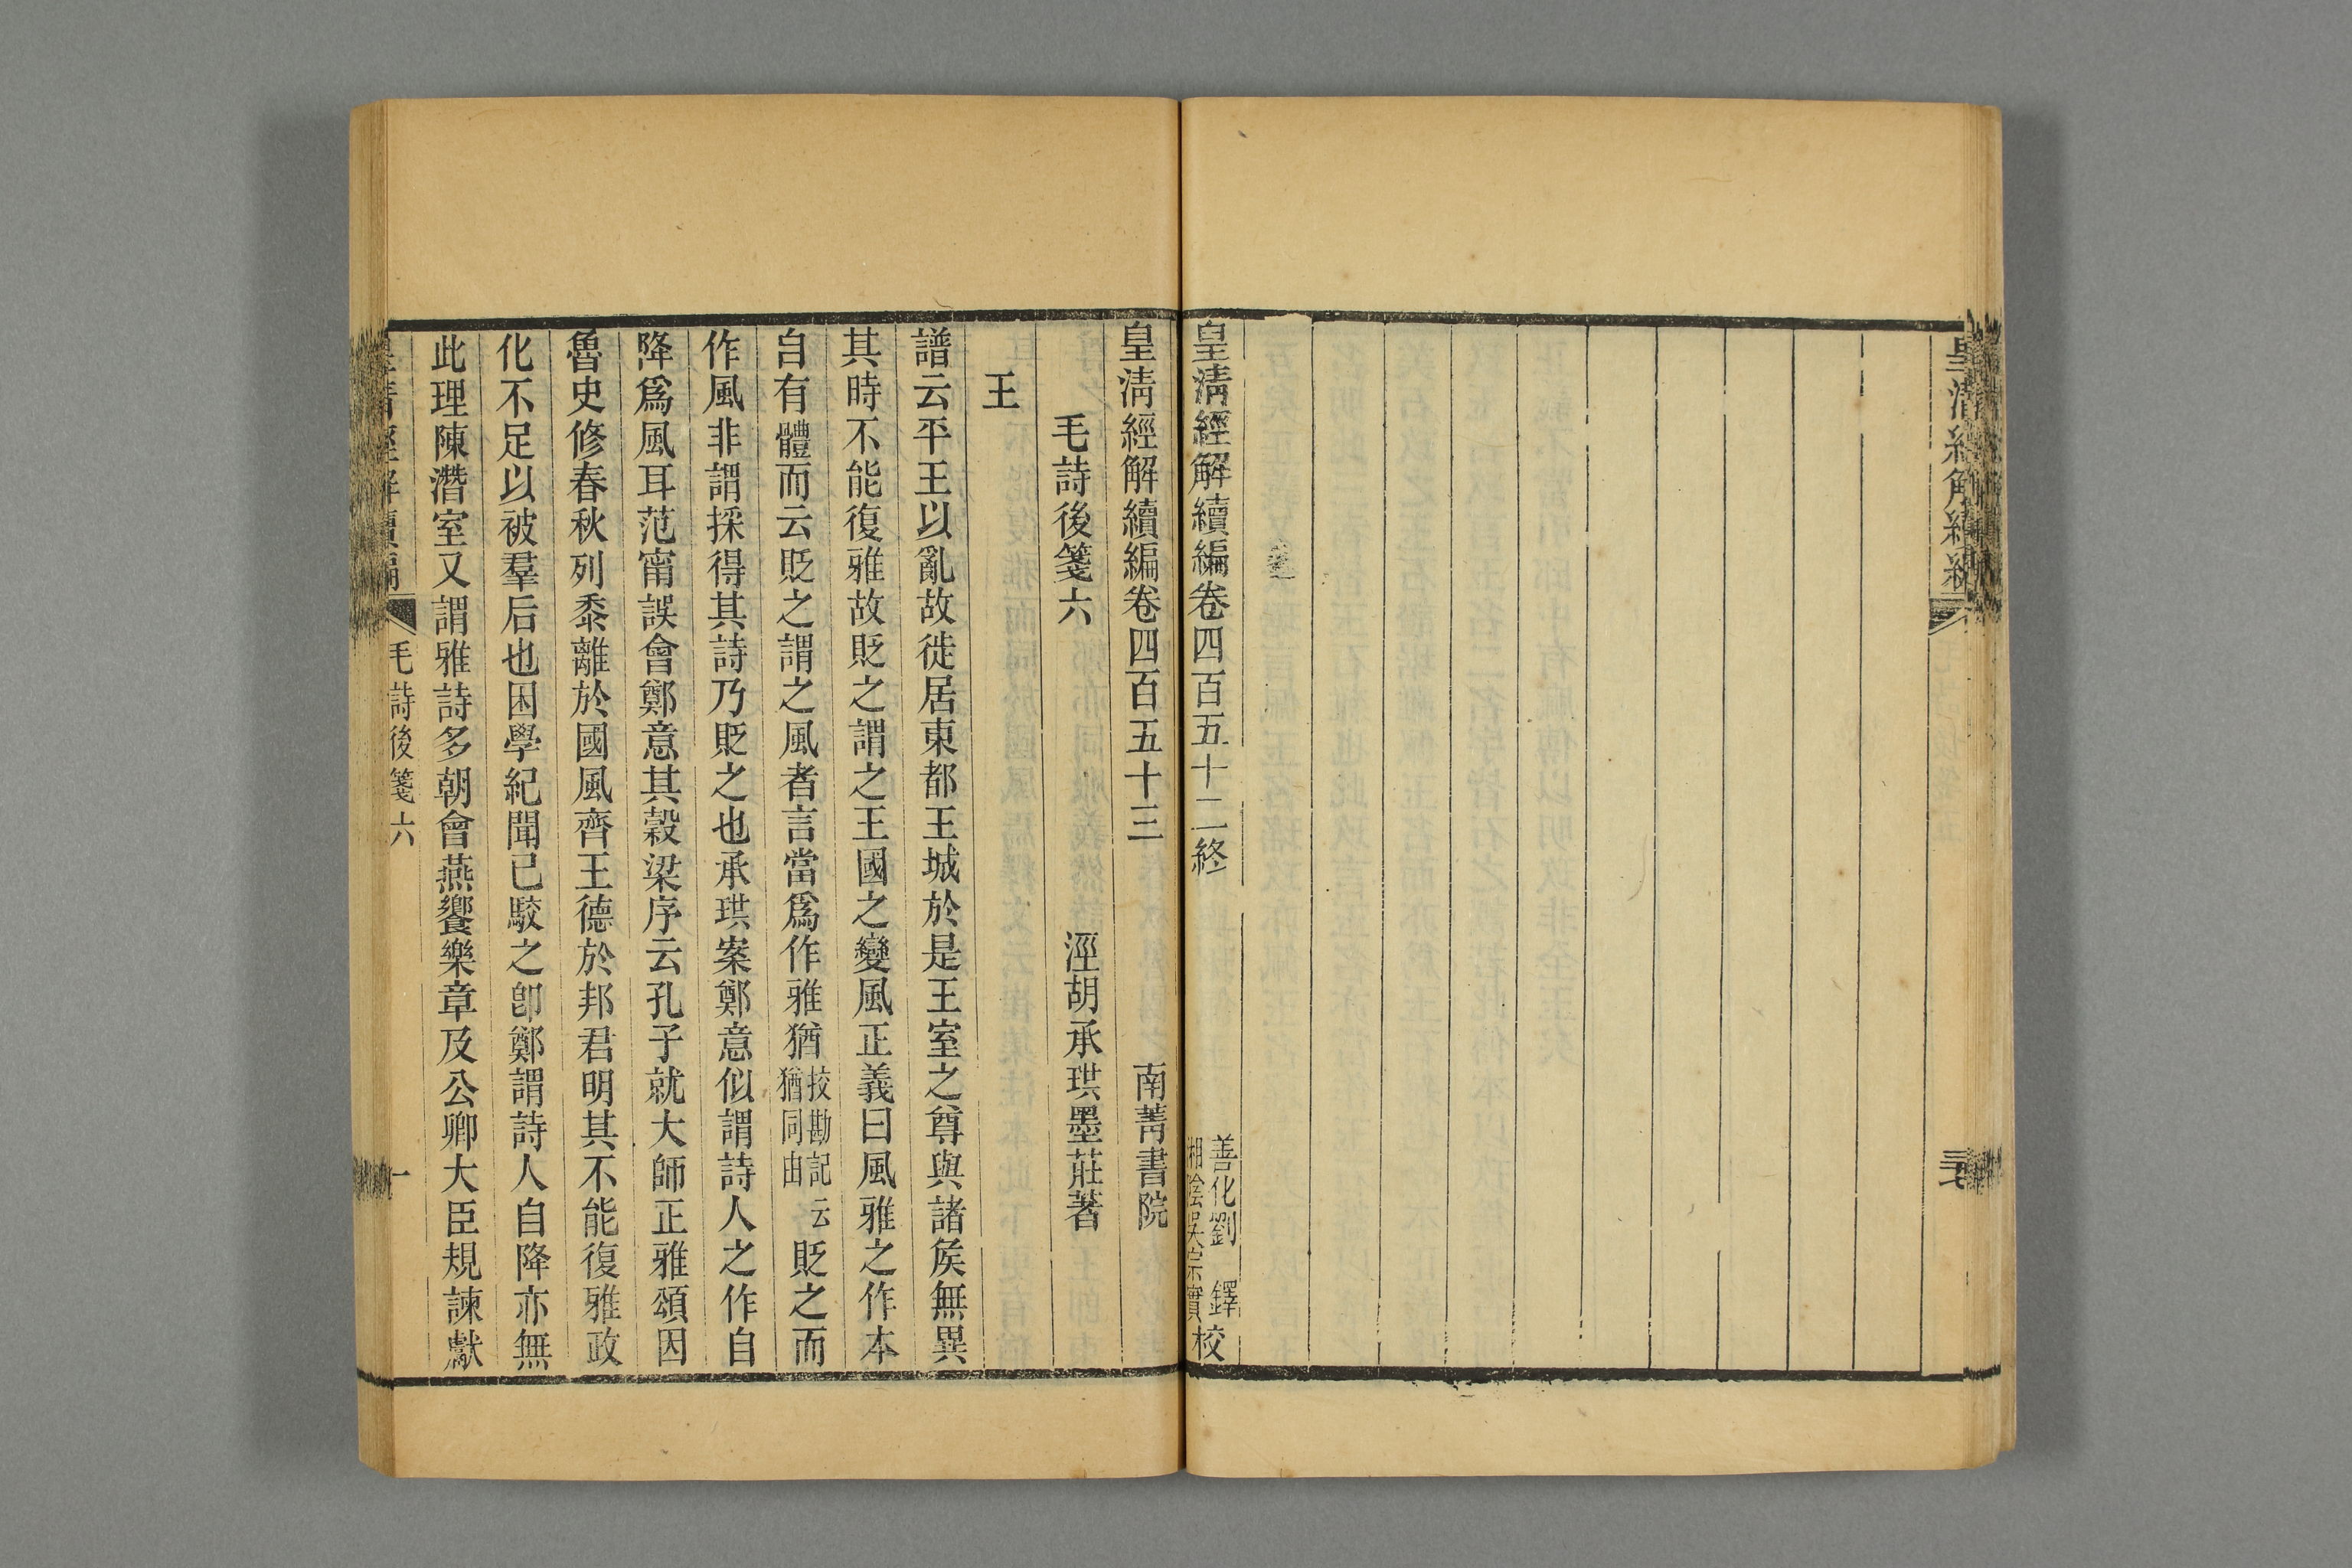 皇清經解續編
皇清經解續編卷四百五十二終
善化劉 鐸
湘陰吳宗實
校
皇清經解續編卷四百五十三
南菁書院
毛詩後箋六
涇胡承珙墨莊著
王
譜云平王以亂故徙居東都王城於是王室之尊與諸矦無異
其時不能復雅故貶之謂之王國之變風正義曰風雅之作本
自有體而云貶之謂之風者言當爲作雅猶
挍勘記云
猶同由
貶之而
作風非謂採得其詩乃貶之也承珙案鄭意似謂詩人之作自
降爲風耳范甯誤會鄭意其穀梁序云孔子就大師正雅頌因
魯史修春秋列黍離於國風齊王德於邦君明其不能復雅政
化不足以被羣后也困學紀聞已駮之卽鄭謂詩人自降亦無
此理陳潛室又謂雅詩多朝會燕饗樂章及公卿大臣規諫獻
毛詩後箋六
一